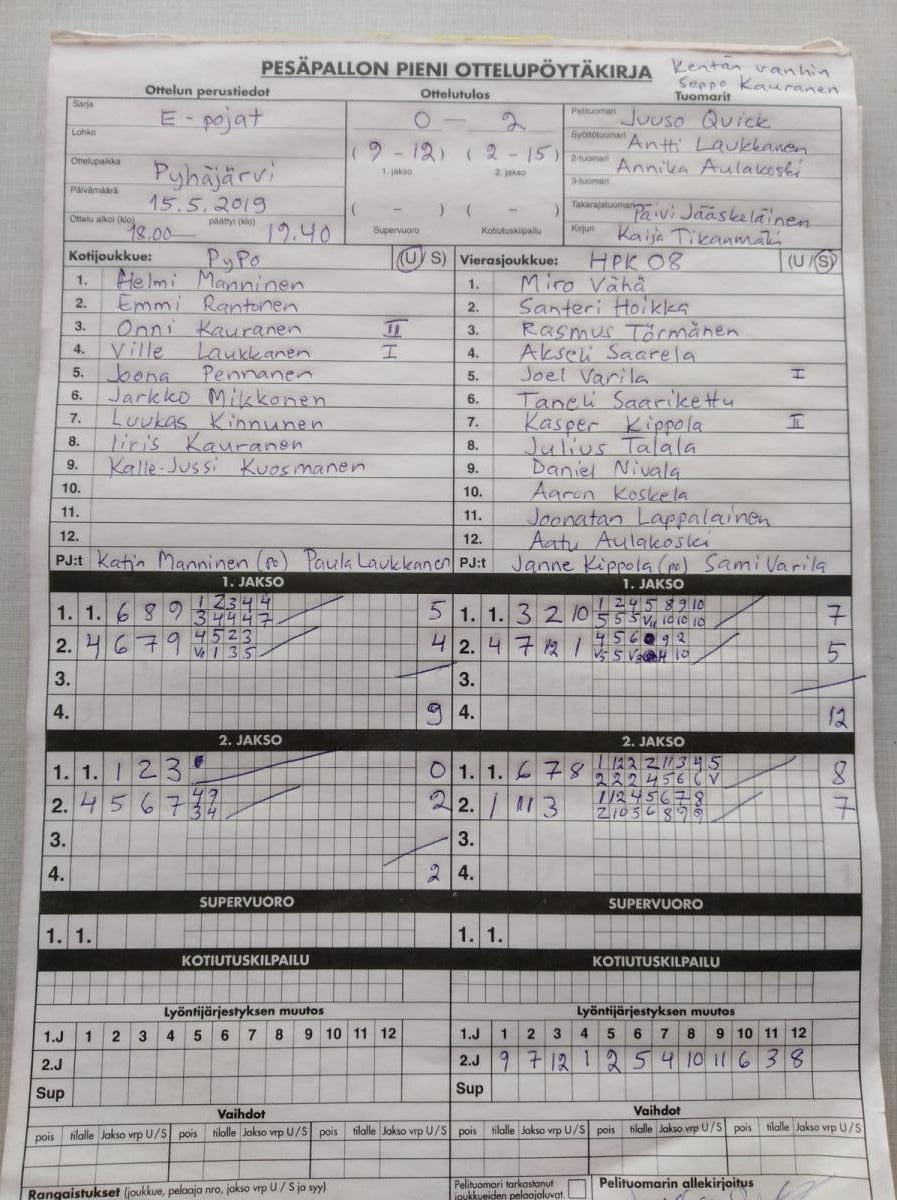 PESÄPALLON PIENI OTTELUPÖYTÄKIRJA
Kentän vanhin
Seppo Kauranen
Ottelun perustiedot Ottelutulos Tuomarit
Sarja E-pojat
Lohko
Ottelupaikka Pyhäjärvi
Päivämäärä 15.5.2019
Ottelu alkoi (klo) 18.00 päättyi (klo) 19.40
0 – 2
(9 – 12) (2 – 15)
1. jakso 2. jakso
( – ) ( – )
Supervuoro Kotiutuskilpailu
Pelituomari Juuso Quick
Syöttötuomari Antti Laukkanen
2-tuomari Annika Aulakoski
3-tuomari
Takarajatuomari Päivi Jääskeläinen
Kirjuri Kaija Tikanmäki
Kotijoukkue: PyPo (U / S)
1. Helmi Manninen
2. Emmi Rantonen
3. Onni Kauranen II
4. Ville Laukkanen I
5. Joona Pennanen
6. Jarkko Mikkonen
7. Luukas Kinnunen
8. Iiris Kauranen
9. Kalle-Jussi Kuosmanen
10.
11.
12.
PJ:t Katja Manninen (po) Paula Laukkanen
Vierasjoukkue: HPK 08 (U / S)
1. Miro Vähä
2. Santeri Hoikka
3. Rasmus Törmänen
4. Akseli Saarela
5. Joel Varila I
6. Taneli Saarikettu
7. Kasper Kippola II
8. Julius Talala
9. Daniel Nivala
10. Aaron Koskela
11. Joonatan Lappalainen
12. Aatu Aulakoski
PJ:t Janne Kippola (po) Sami Varila
1. JAKSO
1. 1. 6 8 9 1 2 3 4 4 5
3 4 4 4 7
2. 4 6 7 9 4 5 2 3 4
V 1 3 5
3.
4. 9
1. JAKSO
1. 1. 3 2 10 1 2 4 5 8 9 10 7
5 5 5 10 10 10
2. 4 7 12 1 4 5 6 9 2 5
3.
4. 12
2. JAKSO
1. 1. 1 2 3 0
2. 4 5 6 7 4 9 2
3 4
3.
4. 2
2. JAKSO
1. 1. 6 7 8 1 12 2 2 11 3 4 5 8
2 2 2 4 5 6 6 V
2. 1 11 3 1 12 4 5 6 7 8 7
2 10 5 6 8 9 9
3.
4.
SUPERVUORO SUPERVUORO
1. 1. 1. 1.
KOTIUTUSKILPAILU KOTIUTUSKILPAILU
Lyöntijärjestyksen muutos Lyöntijärjestyksen muutos
1.J 1 2 3 4 5 6 7 8 9 10 11 12 1.J 1 2 3 4 5 6 7 8 9 10 11 12
2.J 2.J 9 7 12 1 2 5 4 10 11 6 3 8
Sup Sup
Vaihdot Vaihdot
pois tilalle Jakso vrp U / S pois tilalle Jakso vrp U / S pois tilalle Jakso vrp U / S pois tilalle Jakso vrp U / S pois tilalle Jakso vrp U / S pois tilalle Jakso vrp U / S
Rangaistukset (joukkue, pelaaja nro, jakso vrp U / S ja syy) Pelituomari tarkastanut Pelituomarin allekirjoitus
joukkueiden pelaajaluvat.